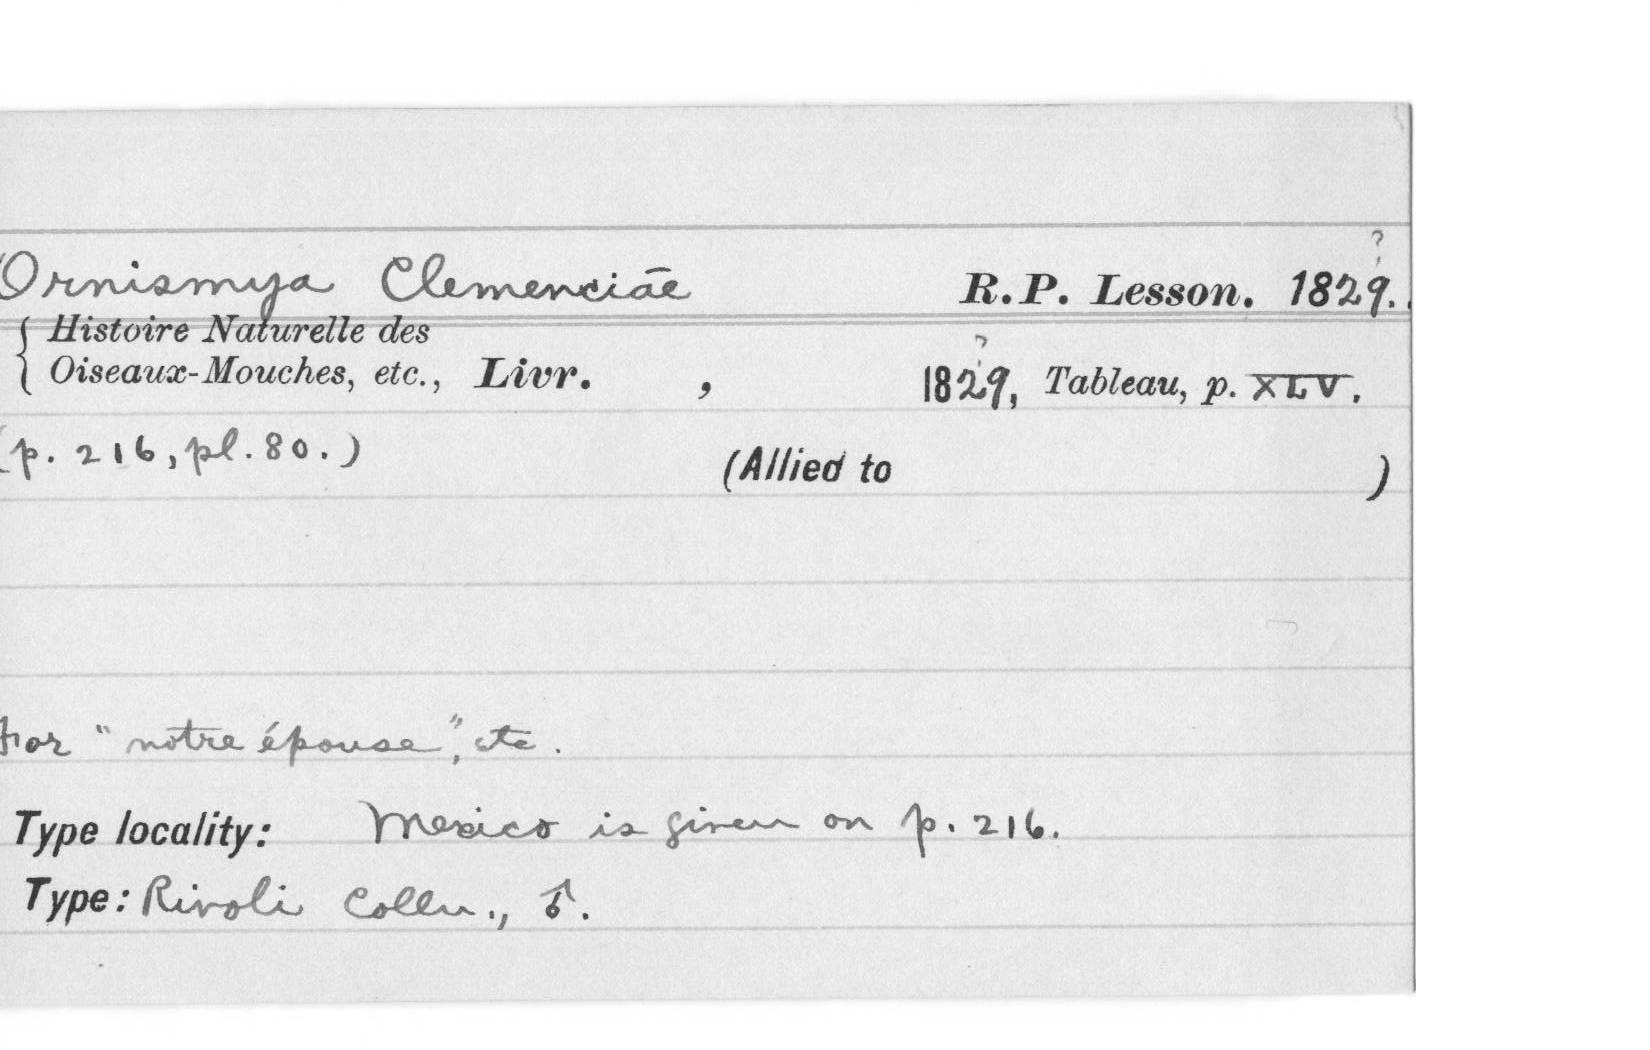 ?
Ornismya Clemenciae R.P. Lesson. 1829.
Histoire Naturelle des
Oiseaux-Mouches, etc., Livr. , 1829?, Tableau, p. XLV.
(p. 216, pl. 80.) (Allied to )
For "notre épouse", etc.
Type locality: Mexico is given on p. 216.
Type: Rivoli Colln., ♂.